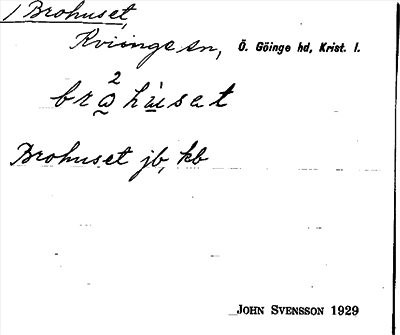 / Brohuset,
Kviinge sn, Ö. Göinge hd, Krist. l.
2
bro̲hù̲set
Brohuset jb, kb
JOHN SVENSSON 1929